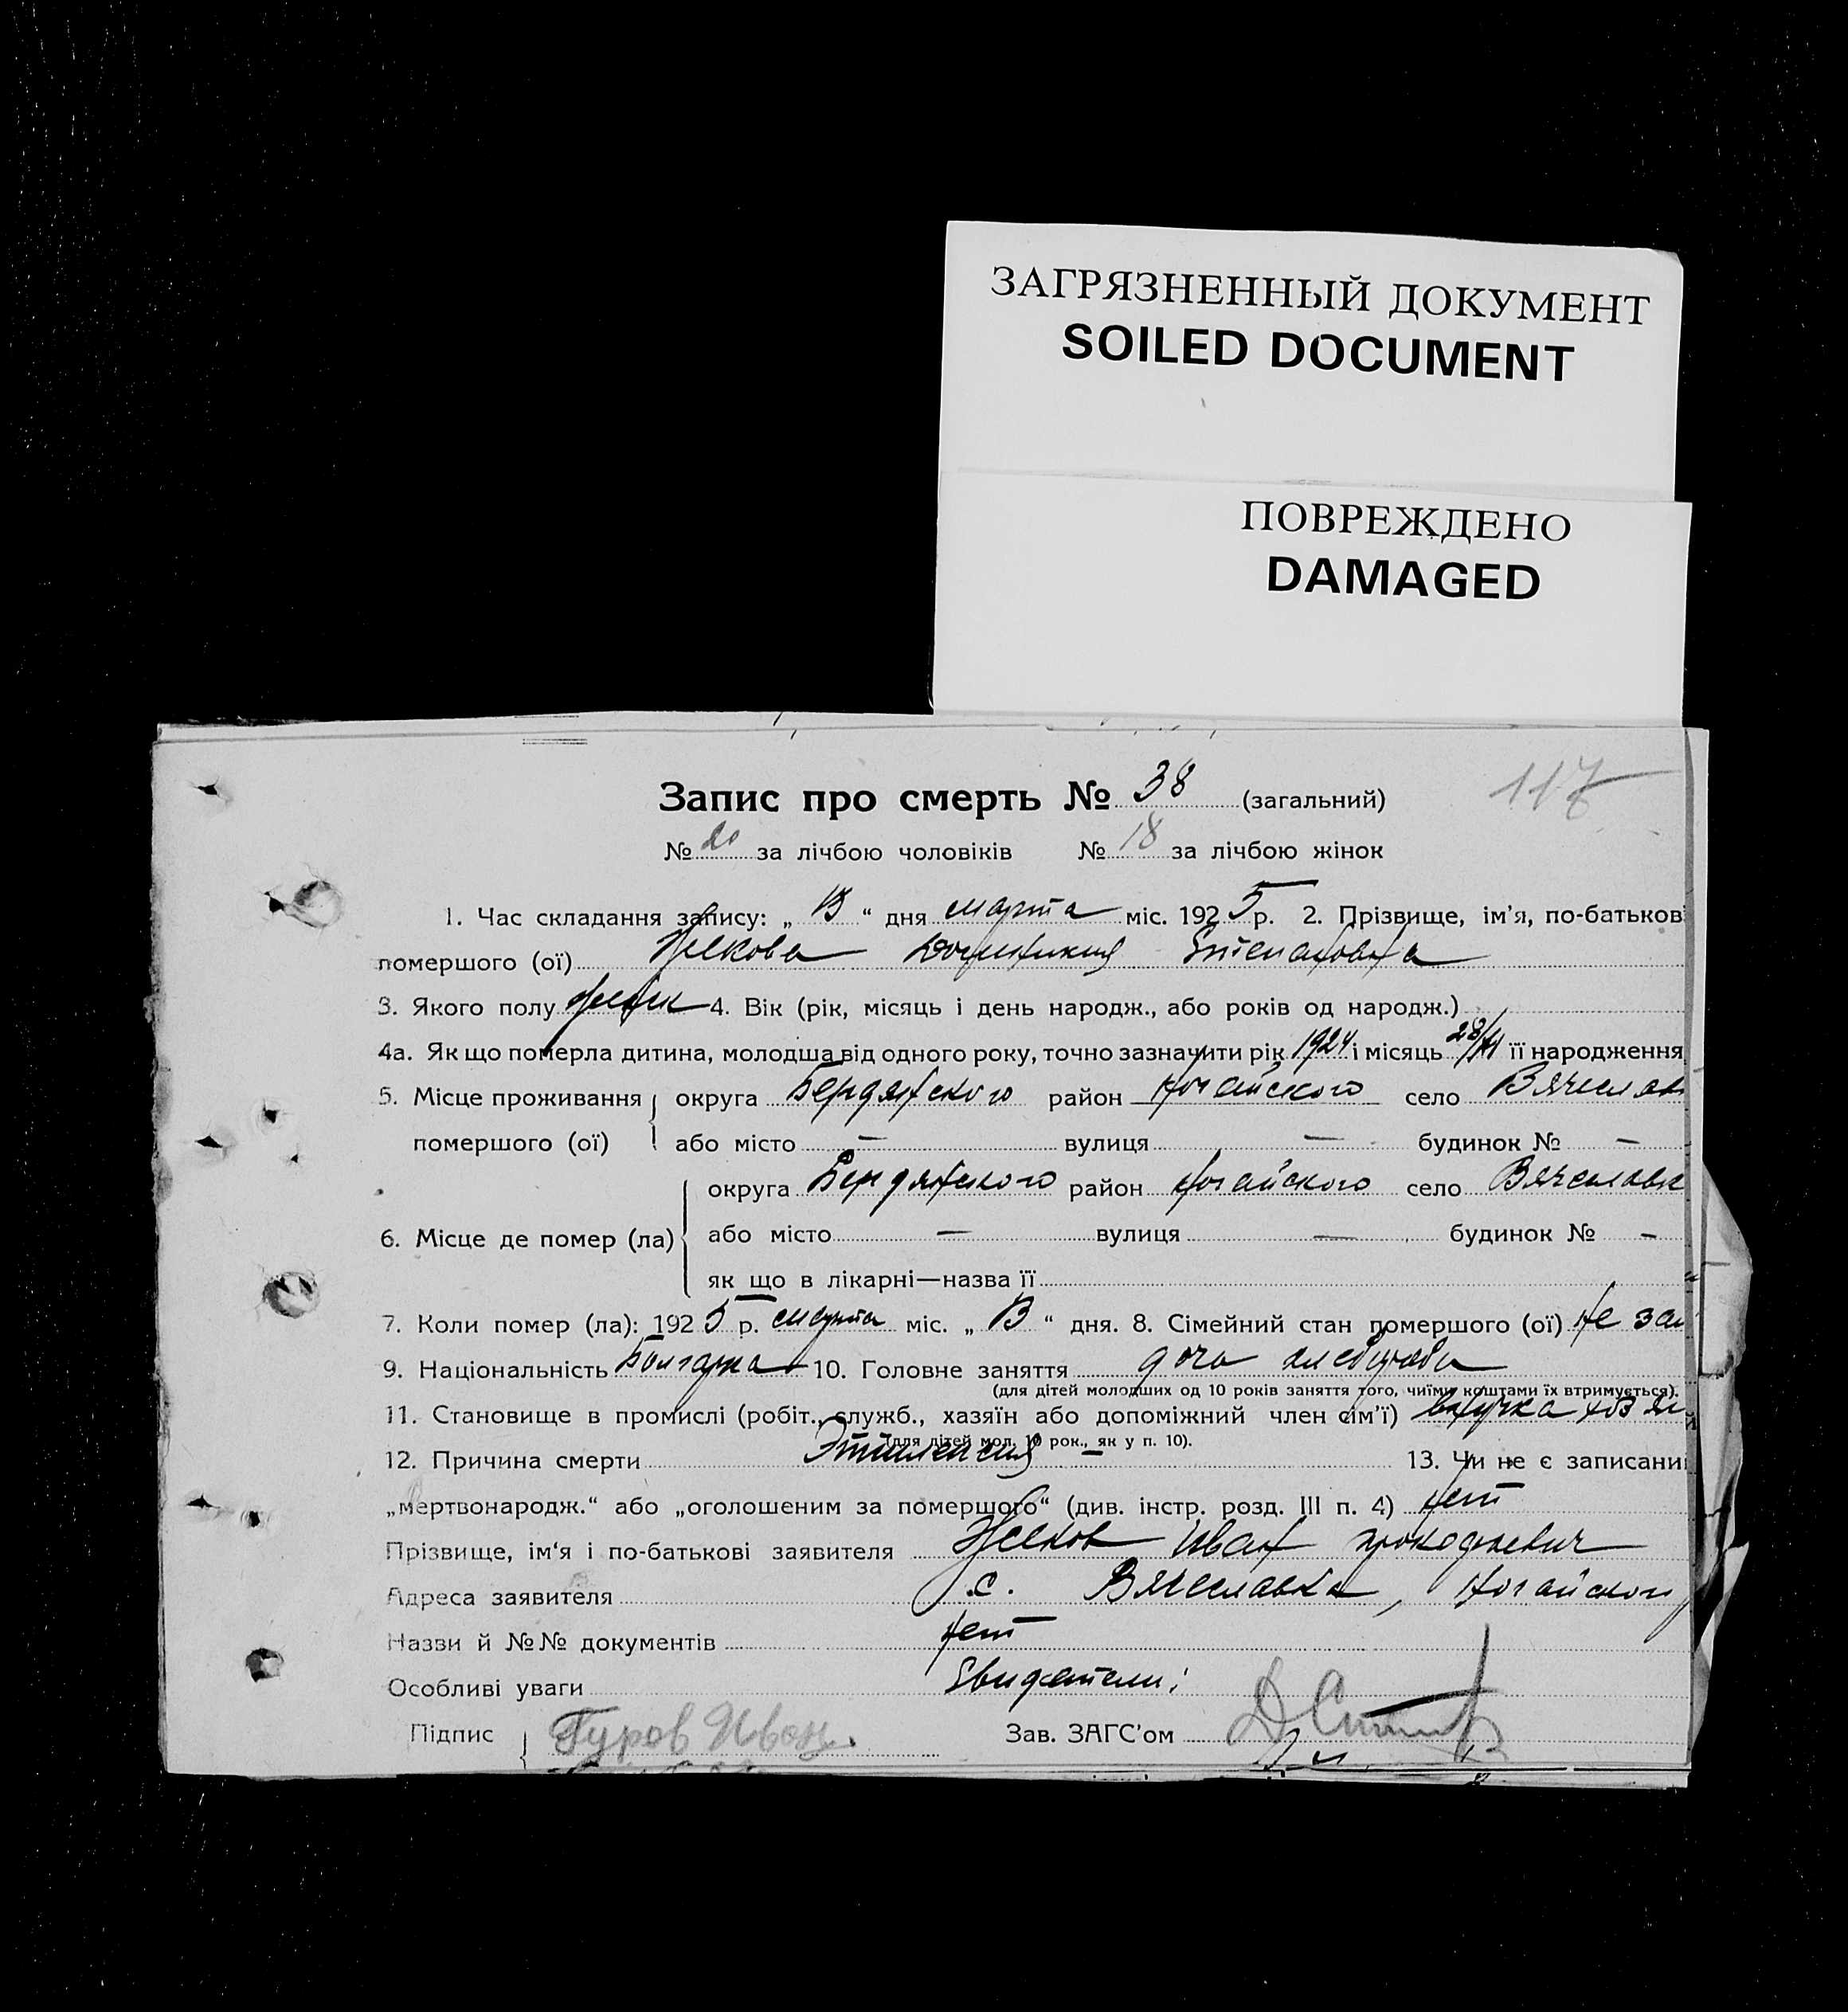 ЗАГРЯЗНЕННЫЙ ДОКУМЕНТ
SOILED DOCUMENT
ПОВРЕЖДЕНО
DAMAGED
117
Запис про смерть № 38 (загальний)
№ 20 за лічбою чоловіків № 18 за лічбою жінок
1. Час складання запису: „ 13 “ дня марта міс. 1925 р. 2. Прізвище, ім'я, по-батьков
помершого (ої) Желкова Степановна
3. Якого полу женск 4. Вік (рік, місяць і день народж., або років од народж.)
4а. Як що померла дитина, молодша від одного року, точно зазначити рік 1924 і місяць її народження
5. Місце проживання округа Бердянского район Ногайского село Вячеслав
помершого (ої) або місто — вулиця — будинок № —
округа Бердянского район Ногайского село Вячеславк
6. Місце де помер (ла) або місто — вулиця — будинок № —
як що в лікарні—назва її
7. Коли помер (ла): 1925 р. марта міс. „ 13 “ дня. 8. Сімейний стан помершого (ої) не зам
9. Національність Болгарка 10. Головне заняття дочь хлебороба
(для дітей молодших од 10 років заняття того, чиїми коштами їх втримується).
11. Становище в промислі (робіт., служб., хазяїн або допоміжний член сім'ї) внучка хозяи
(для дітей мол. 10 рок., як у п. 10).
12. Причина смерти Эпилепсия — 13. Чи не є записани
„мертвонародж.“ або „оголошеним за помершого“ (див. інстр. розд. III п. 4) нет
Прізвище, ім'я і по-батькові заявителя Желков Иван
Адреса заявителя с. Вячеславка, Ногайского
Назви й №№ документів нет
Особливі уваги Свидетели:
Підпис Гуров Иван. Зав. ЗАГС'ом